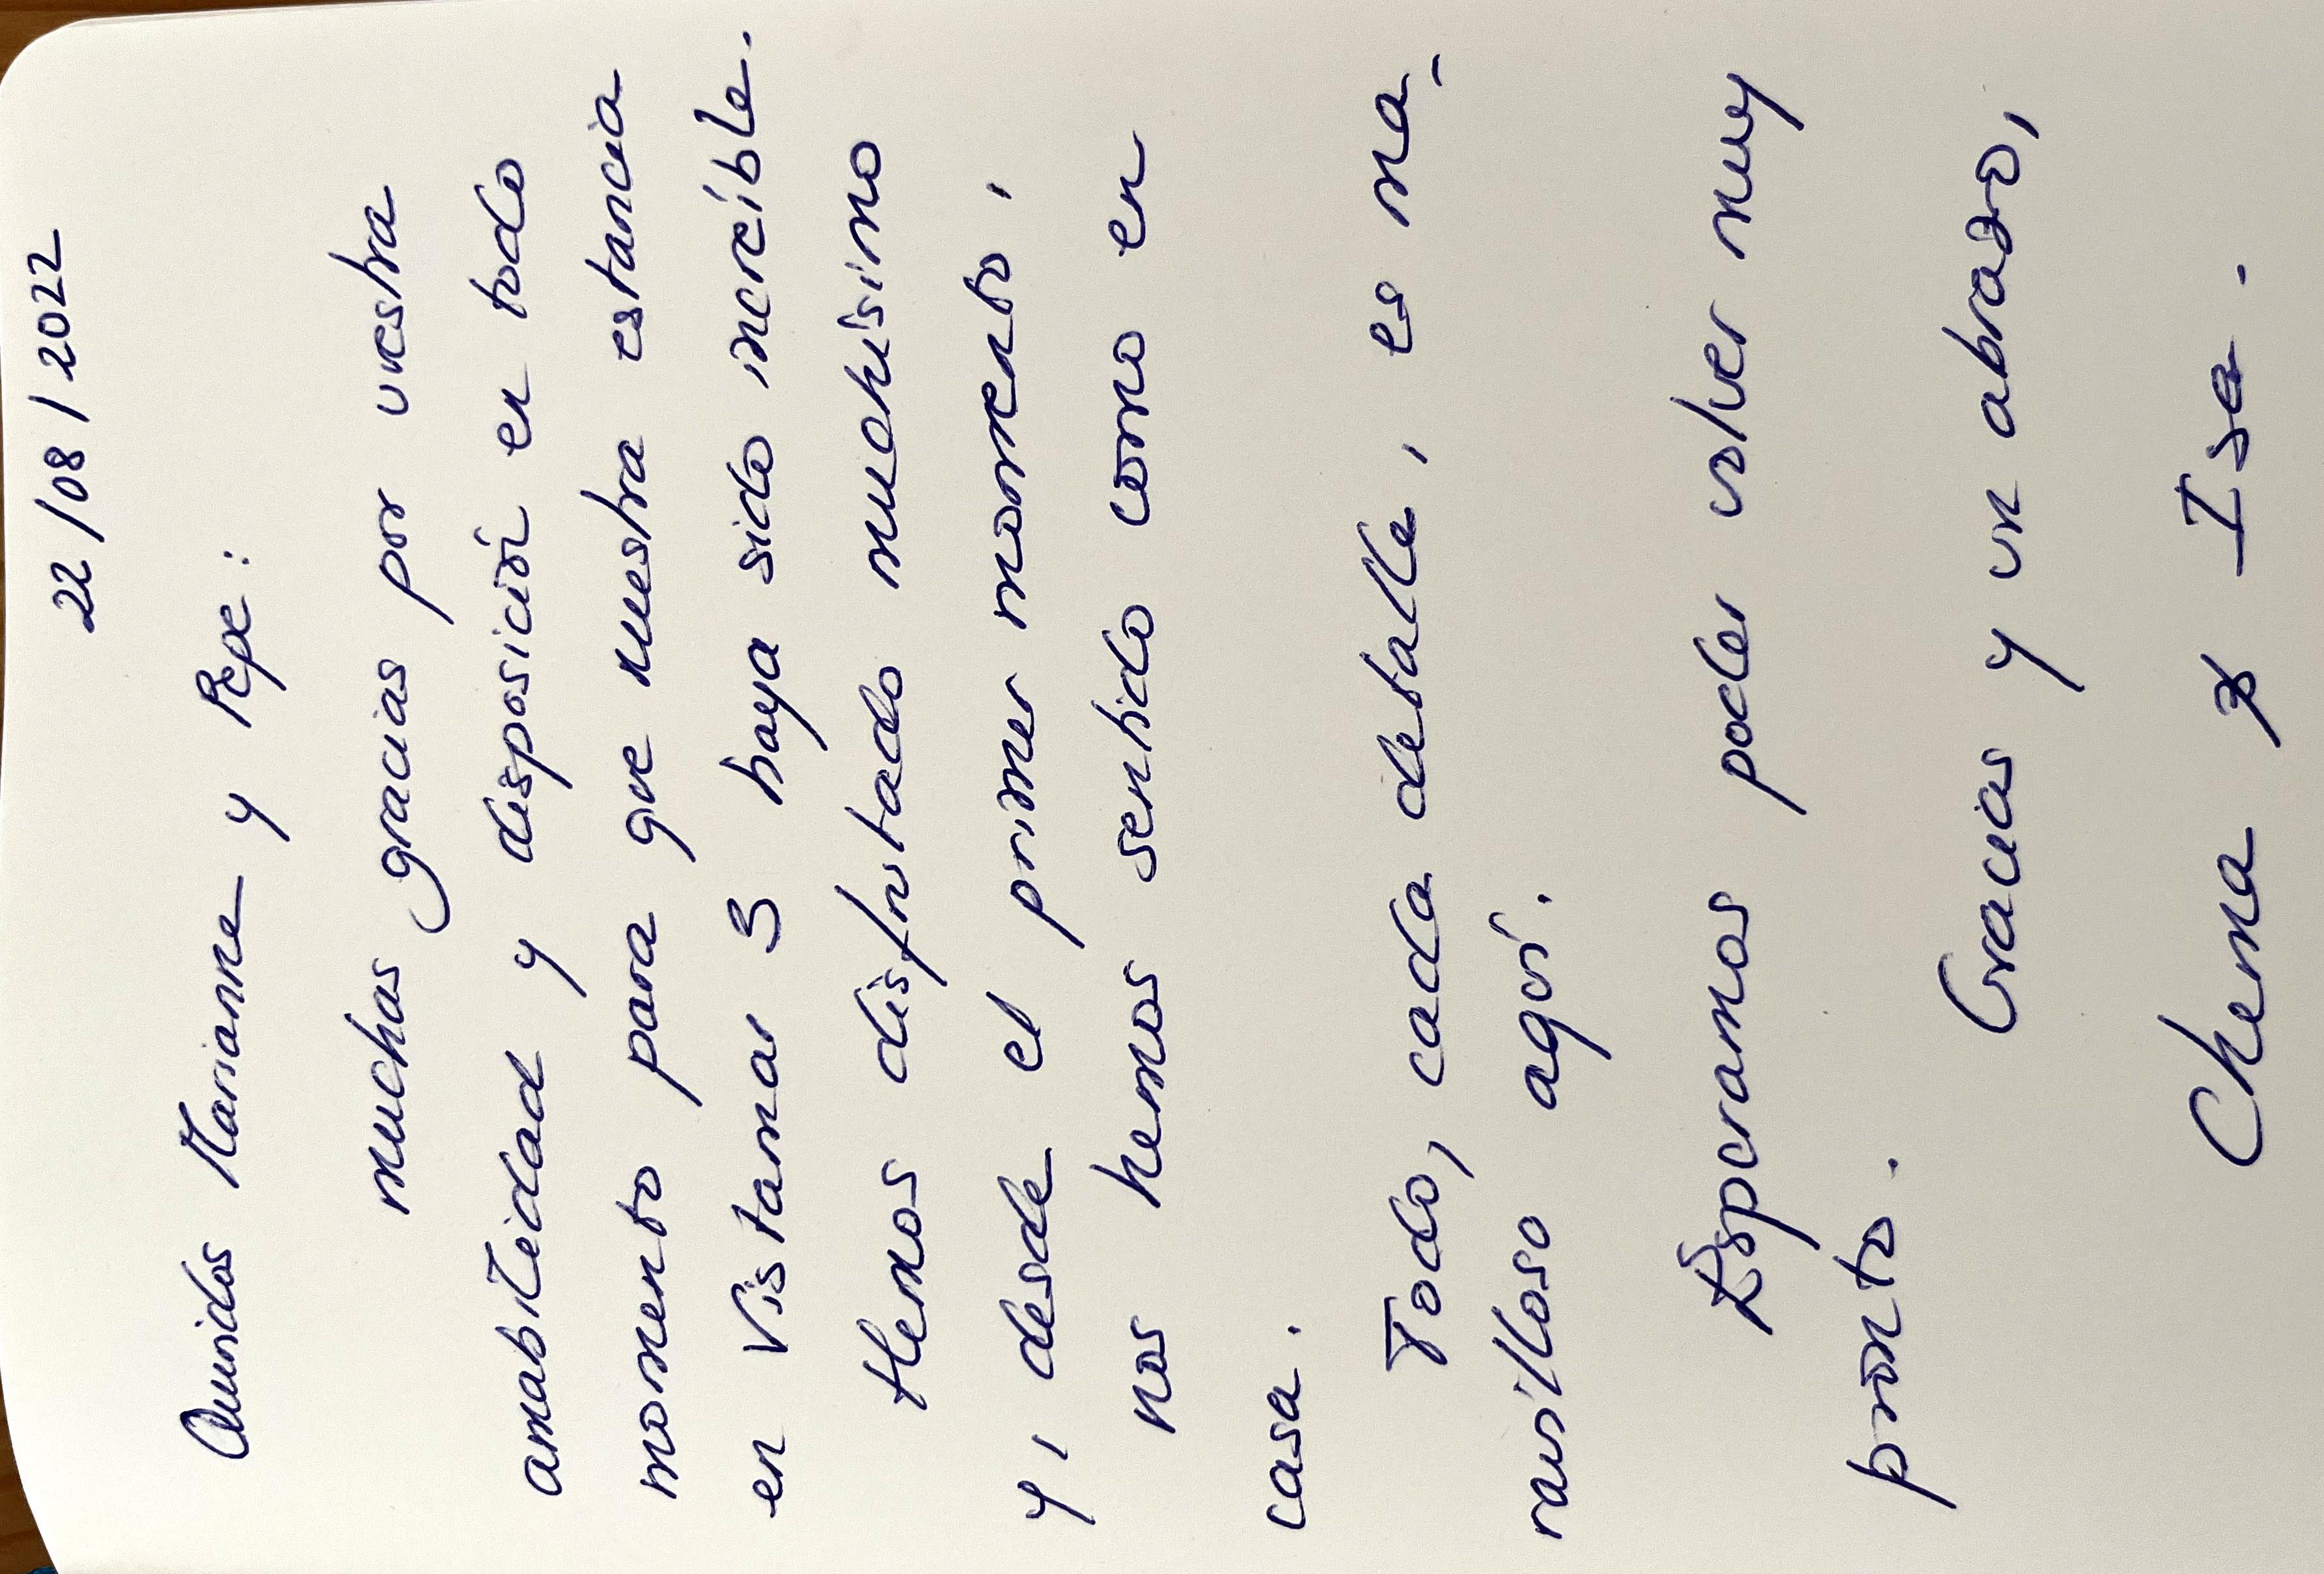 22/08/2022
Queridos Marianne y Pepe:
muchas gracias por vuestra
amabilidad y disposición en todo
momento para que nuestra estancia
en Vistamar 3 haya sido increíble.
Hemos disfrutado muchísimo
y, desde el primer momento,
nos hemos sentido como en
casa.
Todo, cada detalle, es ma-
ravilloso aquí.
Esperamos poder volver muy
pronto.
Gracias y un abrazo,
Chema y Isa.